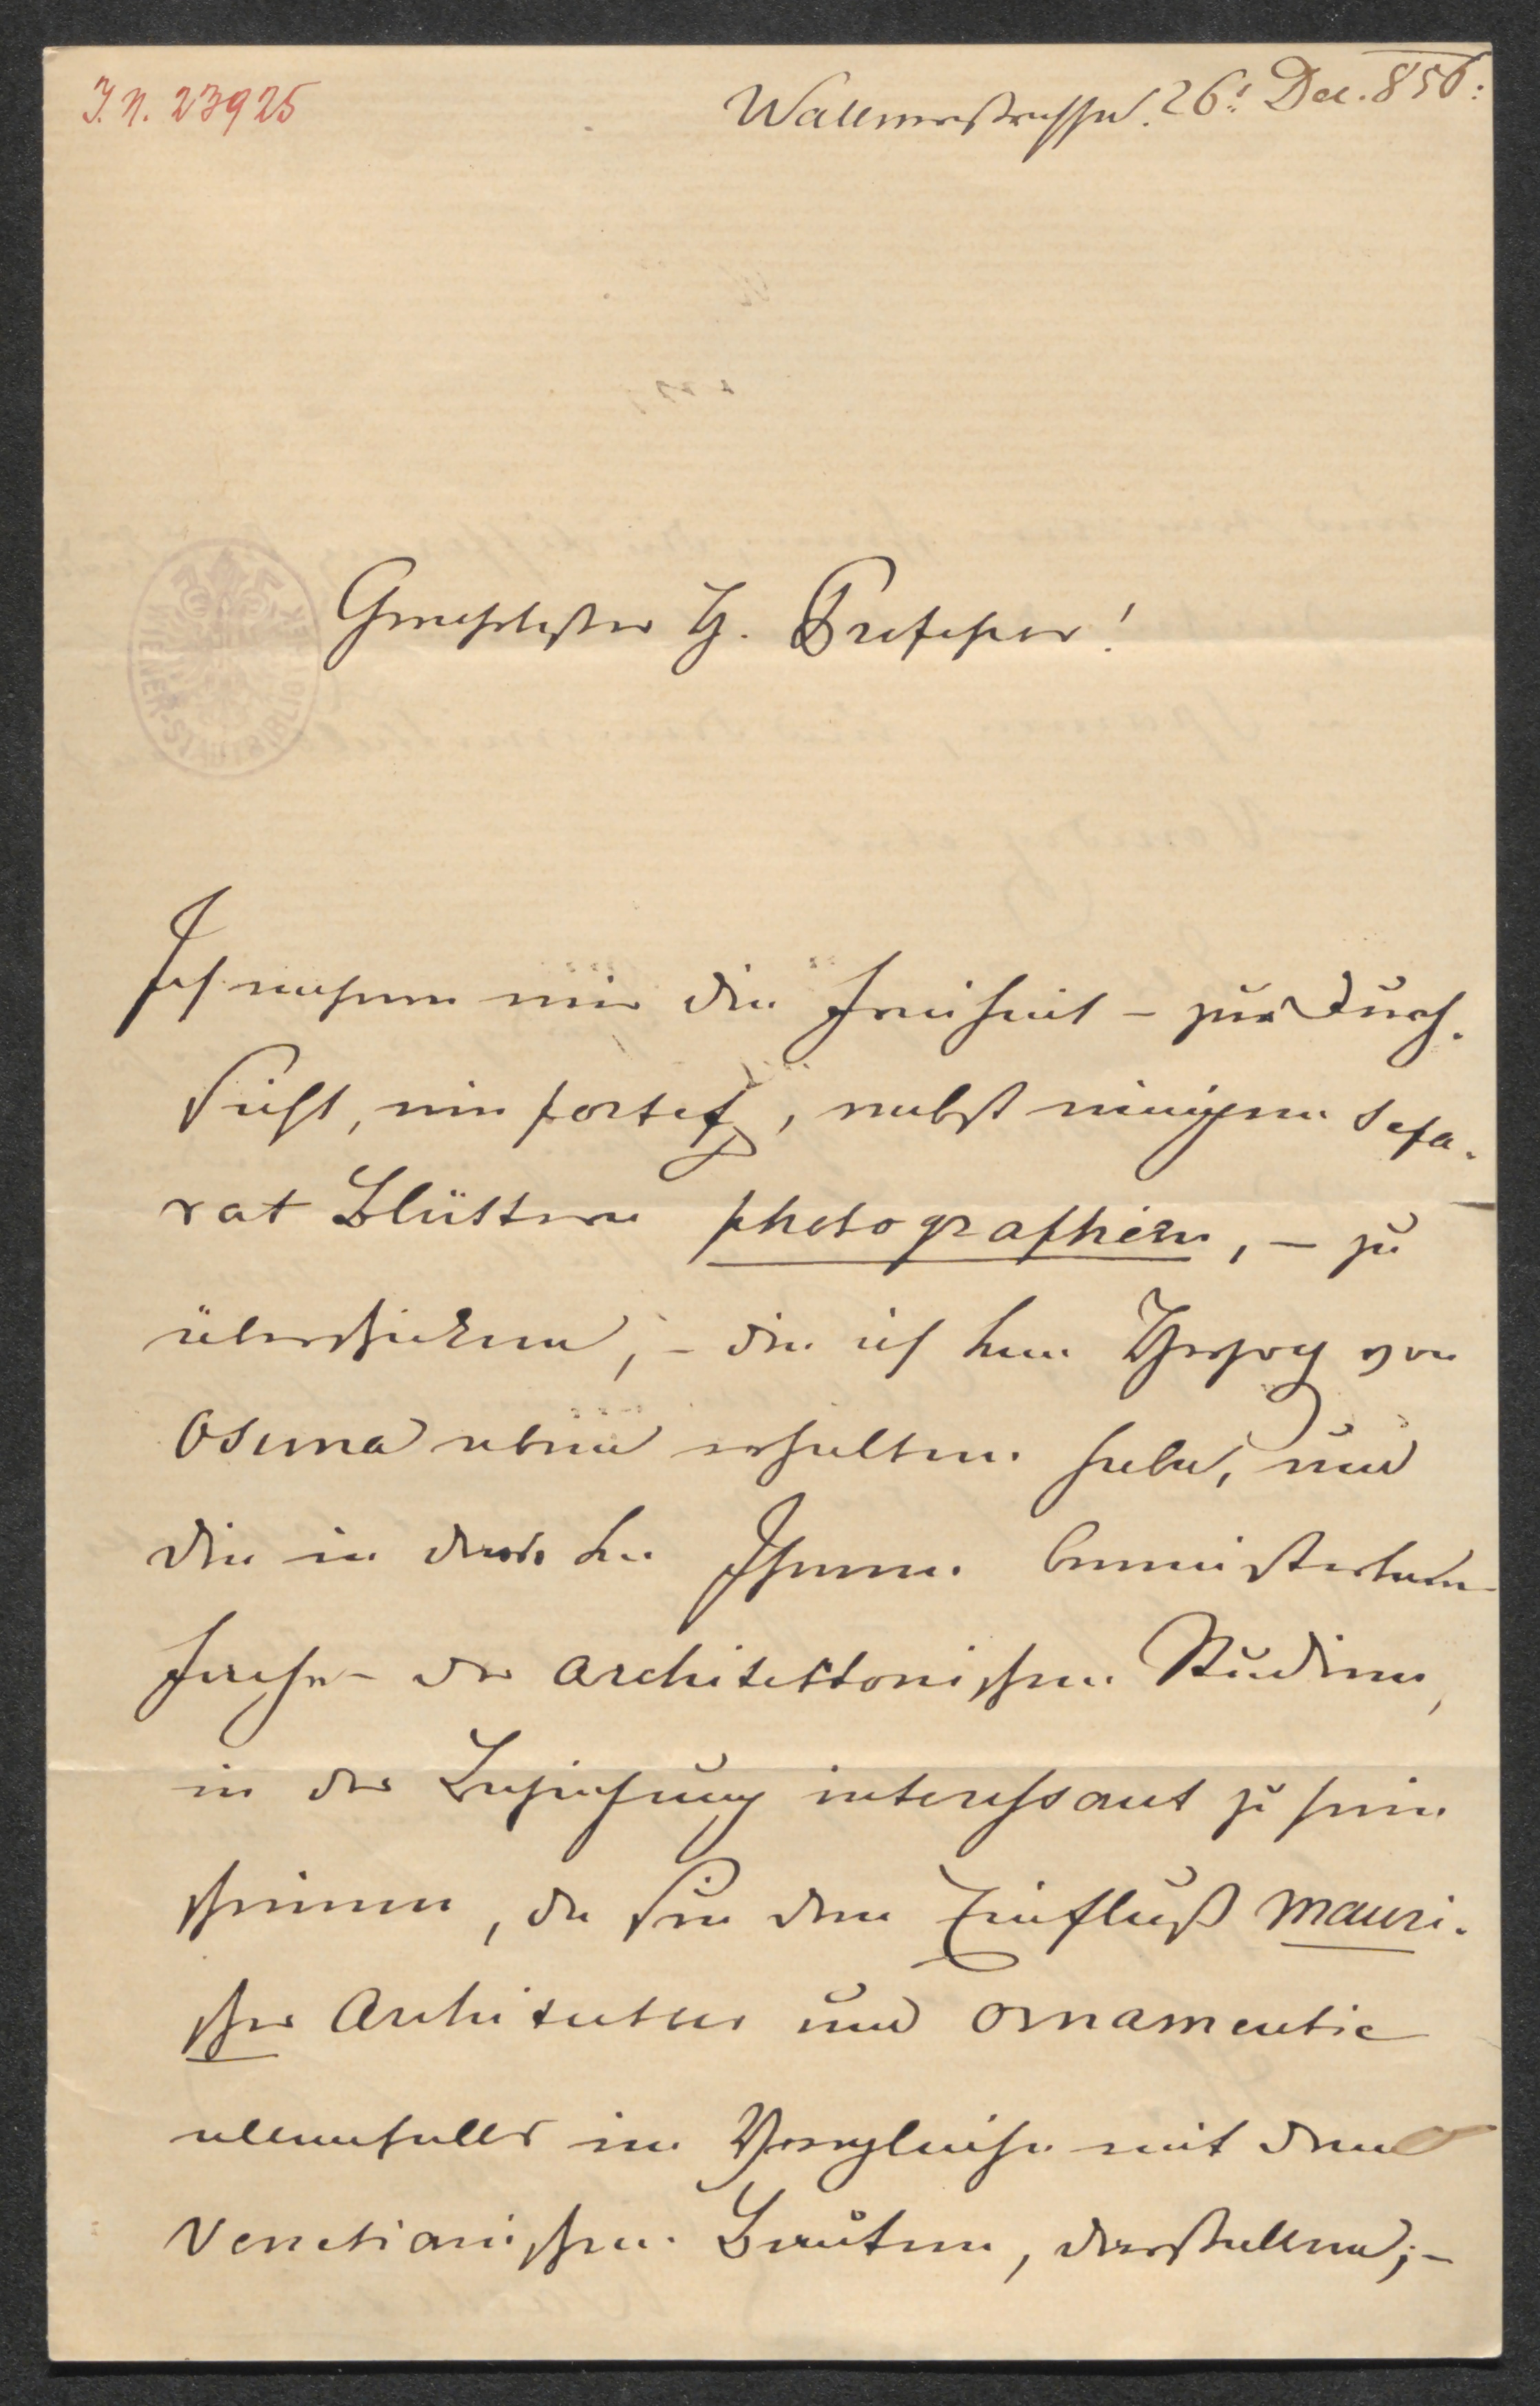 I. N. 23925
Wallnerstrasse. 26t Dec. 856:
Geehrtester H. Professor!
Ich nehme mir die Freiheit – zur Durch-
sicht, ein portef, nebst einigen sepa-
rat Blättern photographien, – zu
überschicken, – die ich Herzog von
Osuna eben erhalten habe, und
die in dem
Fache – der architektonischen Studien,
in der Beziehung interessant zu sein
scheinen, da sie den Einfluß mauri-
scher Architectur und Ornamentic
allenfalls im Vergleiche mit den
Venetianischen Bauten, darstellen; –